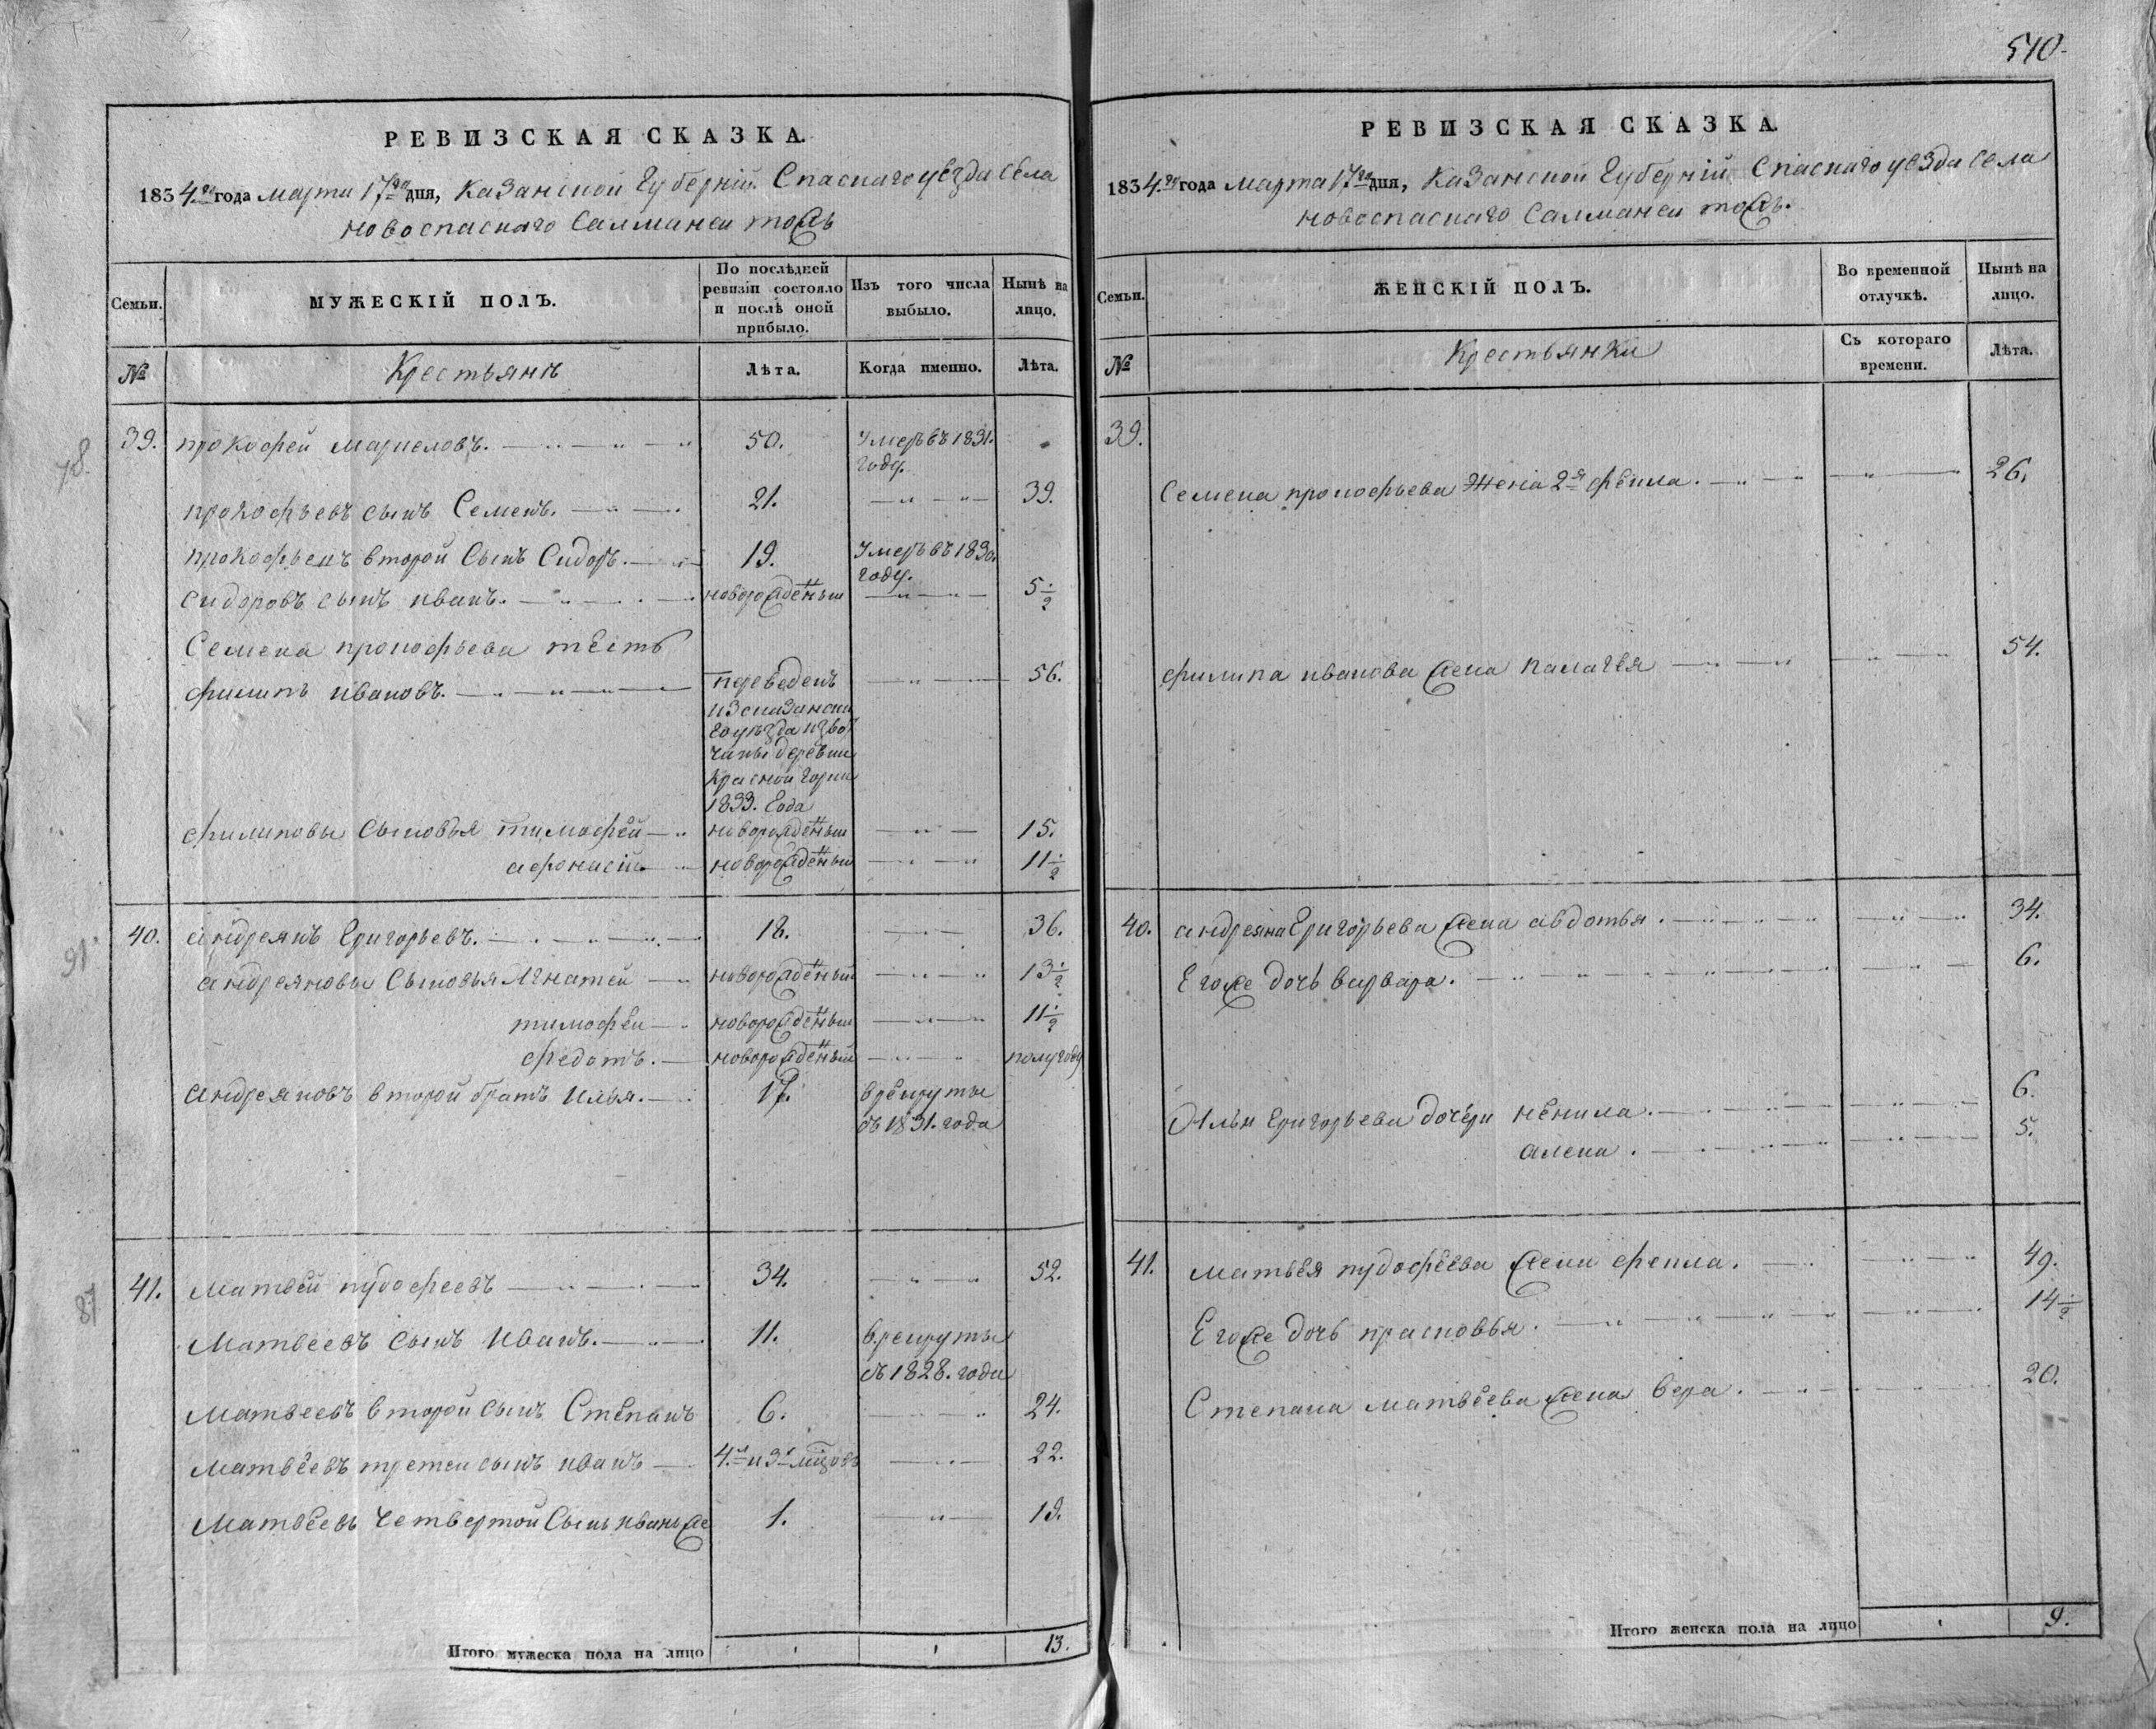 510.
РЕВИЗСКАЯ СКАЗКА.
1834.го года марта 17го дня, Казанской Губерніи Спаскаго уезда села
новоспаскаго Салманеи тожъ
Семьи.
МУЖЕСКІЙ ПОЛЪ.
По послѣдней ревизіи состояло и послѣ оной прибыло.
Изъ того числа выбыло.
Нынѣ на лицо.
№
Крестьянѣ
Лѣта.
Когда именно.
Лѣта.
78.
39. прокофей Маркеловъ. 50. Умеръ въ 1831.
году.
прокофьевъ сынъ Семенъ. 21. 39.
прокофьевъ второй Сынъ Сидоръ. 19. Умеръ въ 1830.
году.
сидоровъ сынъ иванъ. новорожденныи 5 1/2
Семена прокофьева тесть
филипъ ивановъ. переведенъ 56.
изъ казанска
го уѣзда изъ во
чины деревни
Красной горки
1833. Года
филиповы сыновья тимофей новорожденныи 15.
афонасій новорожденныи 11 1/2
91.
40. андреянъ Григорьевъ. 18. 36.
андреяновы Сыновья Игнатей новорожденный 13 1/2
тимофеи новорожденныи 11 1/2
федотъ. новорожденный полугоду
андреяновъ второй братъ Илья. 17. врекруты
съ 1831. года
87
41. Матвей пудофеевъ 34. 52.
Матвеевъ сынъ Иванъ. 11. врекруты
съ 1828. года
Матвеевъ второй сынъ Степанъ 6. 24.
Матвеевъ третей сынъ иванъ 4. и 3 мцовъ 22.
Матвеевъ Четвертой Сынъ иванъ же 1. 19.
Итого мужеска пола на лицо 13.
РЕВИЗСКАЯ СКАЗКА.
1834.го года Марта 17го дня, Казанской Губерній Спаскаго уезда села
новоспаскаго Салманеи тожъ.
Семьи.
ЖЕНСКІЙ ПОЛЪ.
Во временной отлучкѣ.
Нынѣ на лицо.
№
Крестьянки
Съ котораго времени.
Лѣта.
39.
Семена прокофьева Жена 2я фёкла. 26.
филипа иванова жена палагея 54.
40. андреяна Григорьева жена авдотья. 34.
Егоже дочь варвара. 6.
Ильи Григорьева дочери ненила. 6.
алена. 5.
41. матвея пудофеева жена фекла. 49.
Егоже дочь прасковья. 14 1/2
Степана матвеева жена вера. 20.
Итого женска пола на лицо 9.